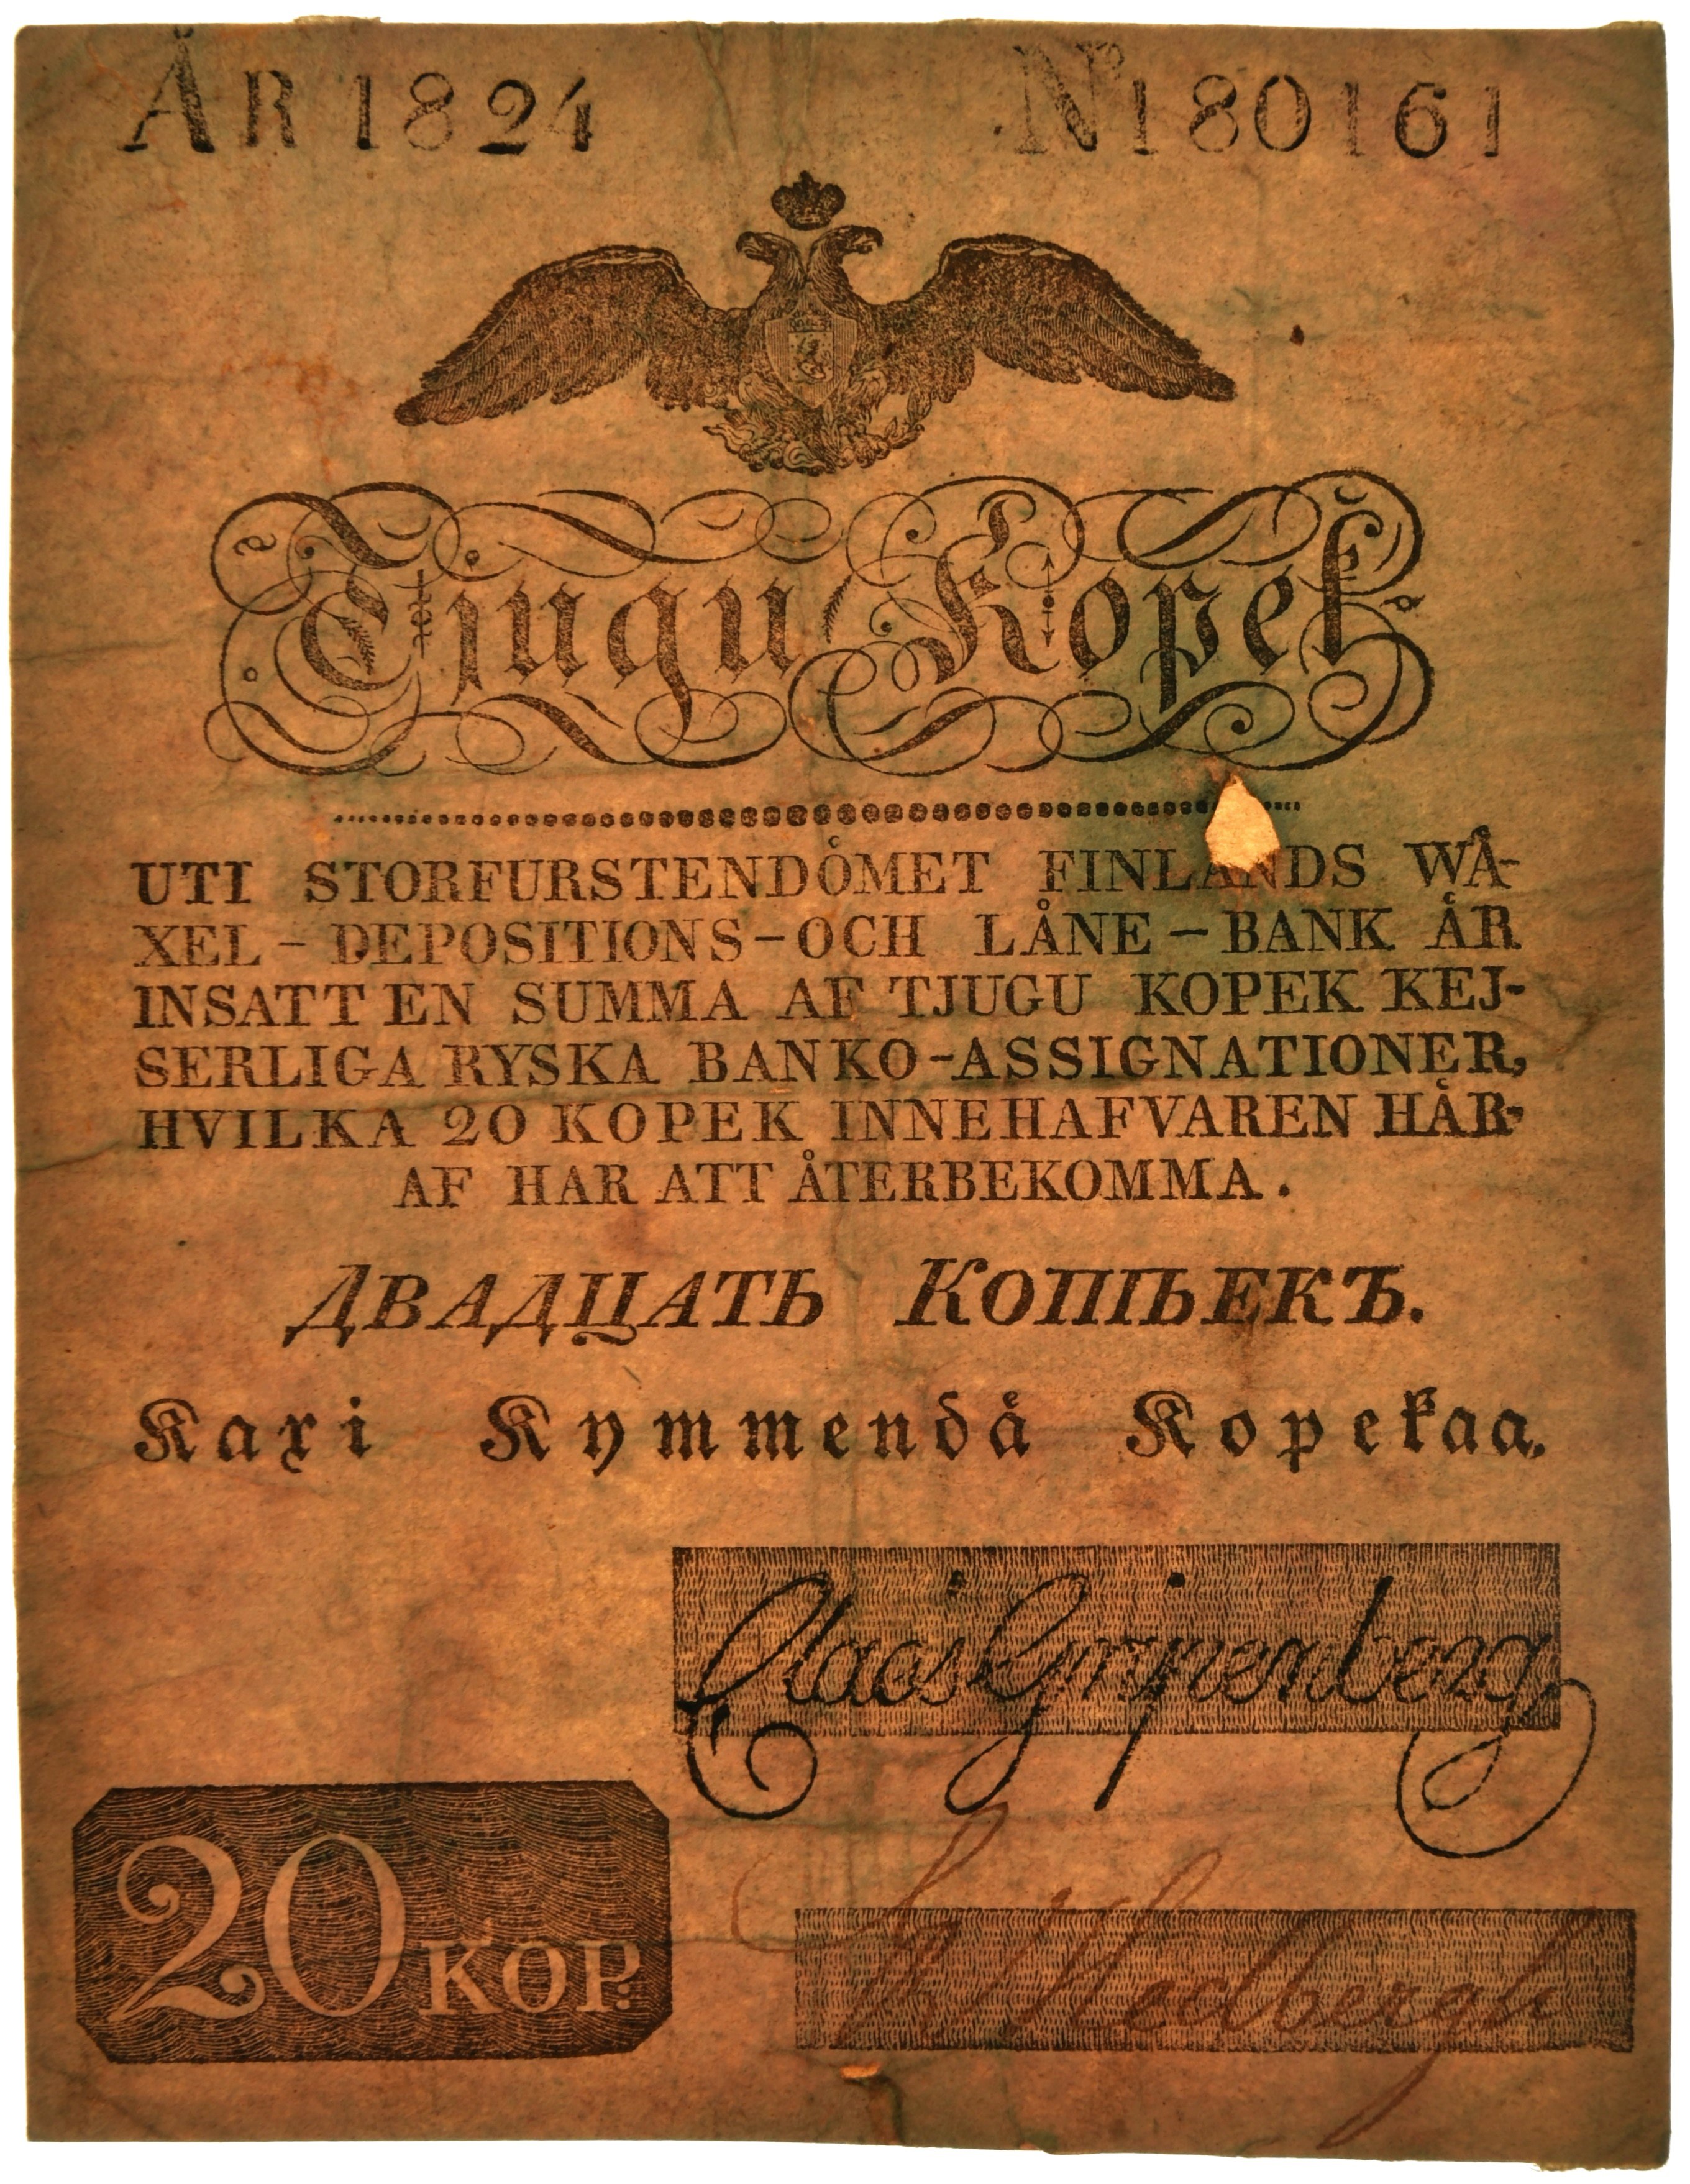 ÅR 1824 No 180161
Tjugu Kopek
UTI STORFURSTENDÖMET FINLANDS WÄ-
XEL-DEPOSITIONS-OCH LÅNE-BANK ÄR
INSATT EN SUMMA AF TJUGU KOPEK KEJ-
SERLIGA RYSKA BANKO-ASSIGNATIONER,
HVILKA 20 KOPEK INNEHAFVAREN HÄR-
AF HAR ATT ÅTERBEKOMMA.
ДВАДЦАТЬ КОПѢЕКЪ.
Kaxi Kymmendå Kopekaa.
Claes Gripenberg
20 KOP.
Hedbergh